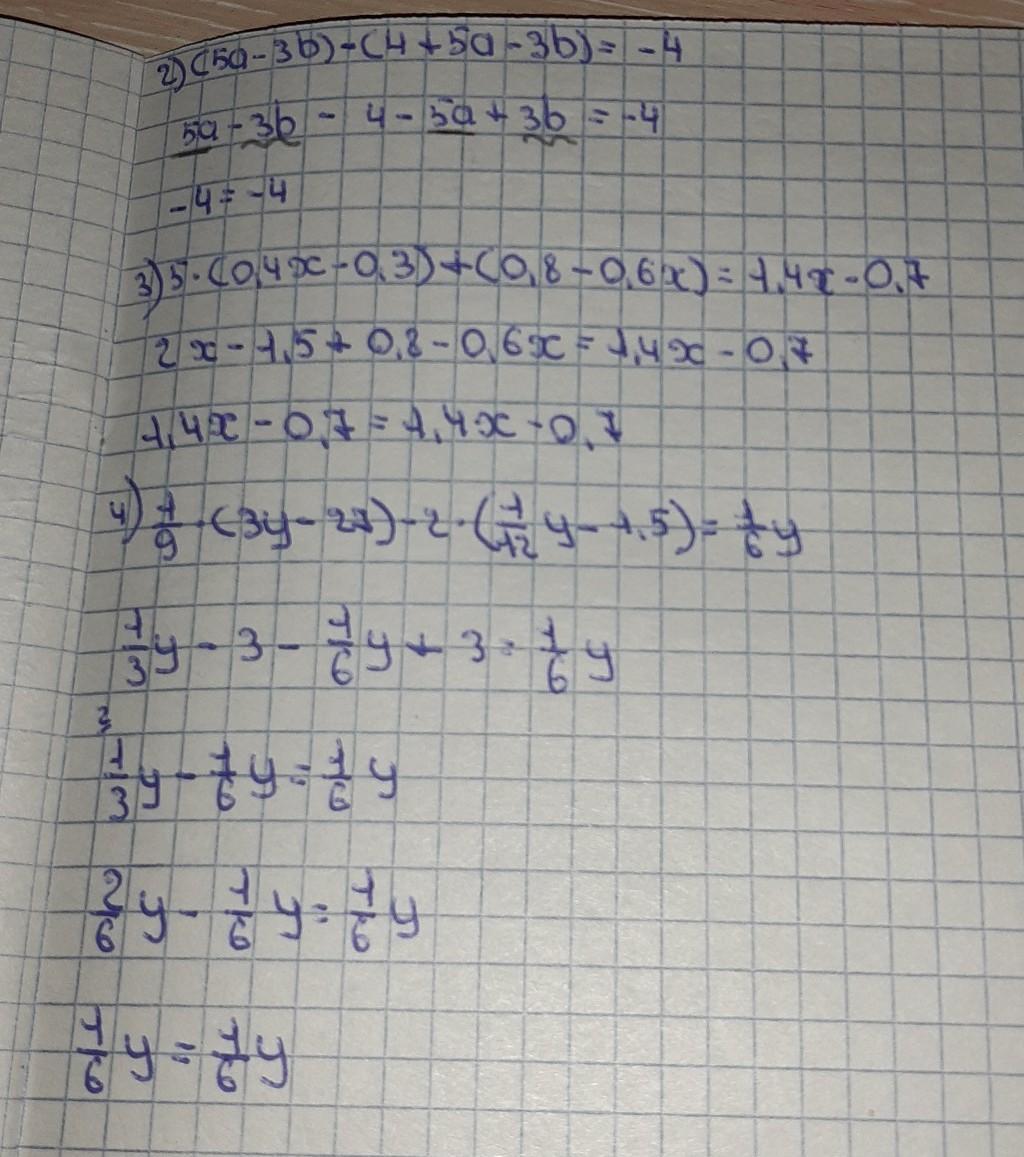 2) (5a - 3b) - (4 + 5a - 3b) = -4
5a - 3b - 4 - 5a + 3b = -4
-4 = -4
3) 5 · (0,4x - 0,3) + (0,8 - 0,6x) = 1,4x - 0,7
2x - 1,5 + 0,8 - 0,6x = 1,4x - 0,7
1,4x - 0,7 = 1,4x - 0,7
4) 1/9 · (3y - 27) - 2 · (1/12 y - 1,5) = 1/6 y
1/3 y - 3 - 1/6 y + 3 = 1/6 y
1/3 y - 1/6 y = 1/6 y
2/6 y - 1/6 y = 1/6 y
1/6 y = 1/6 y